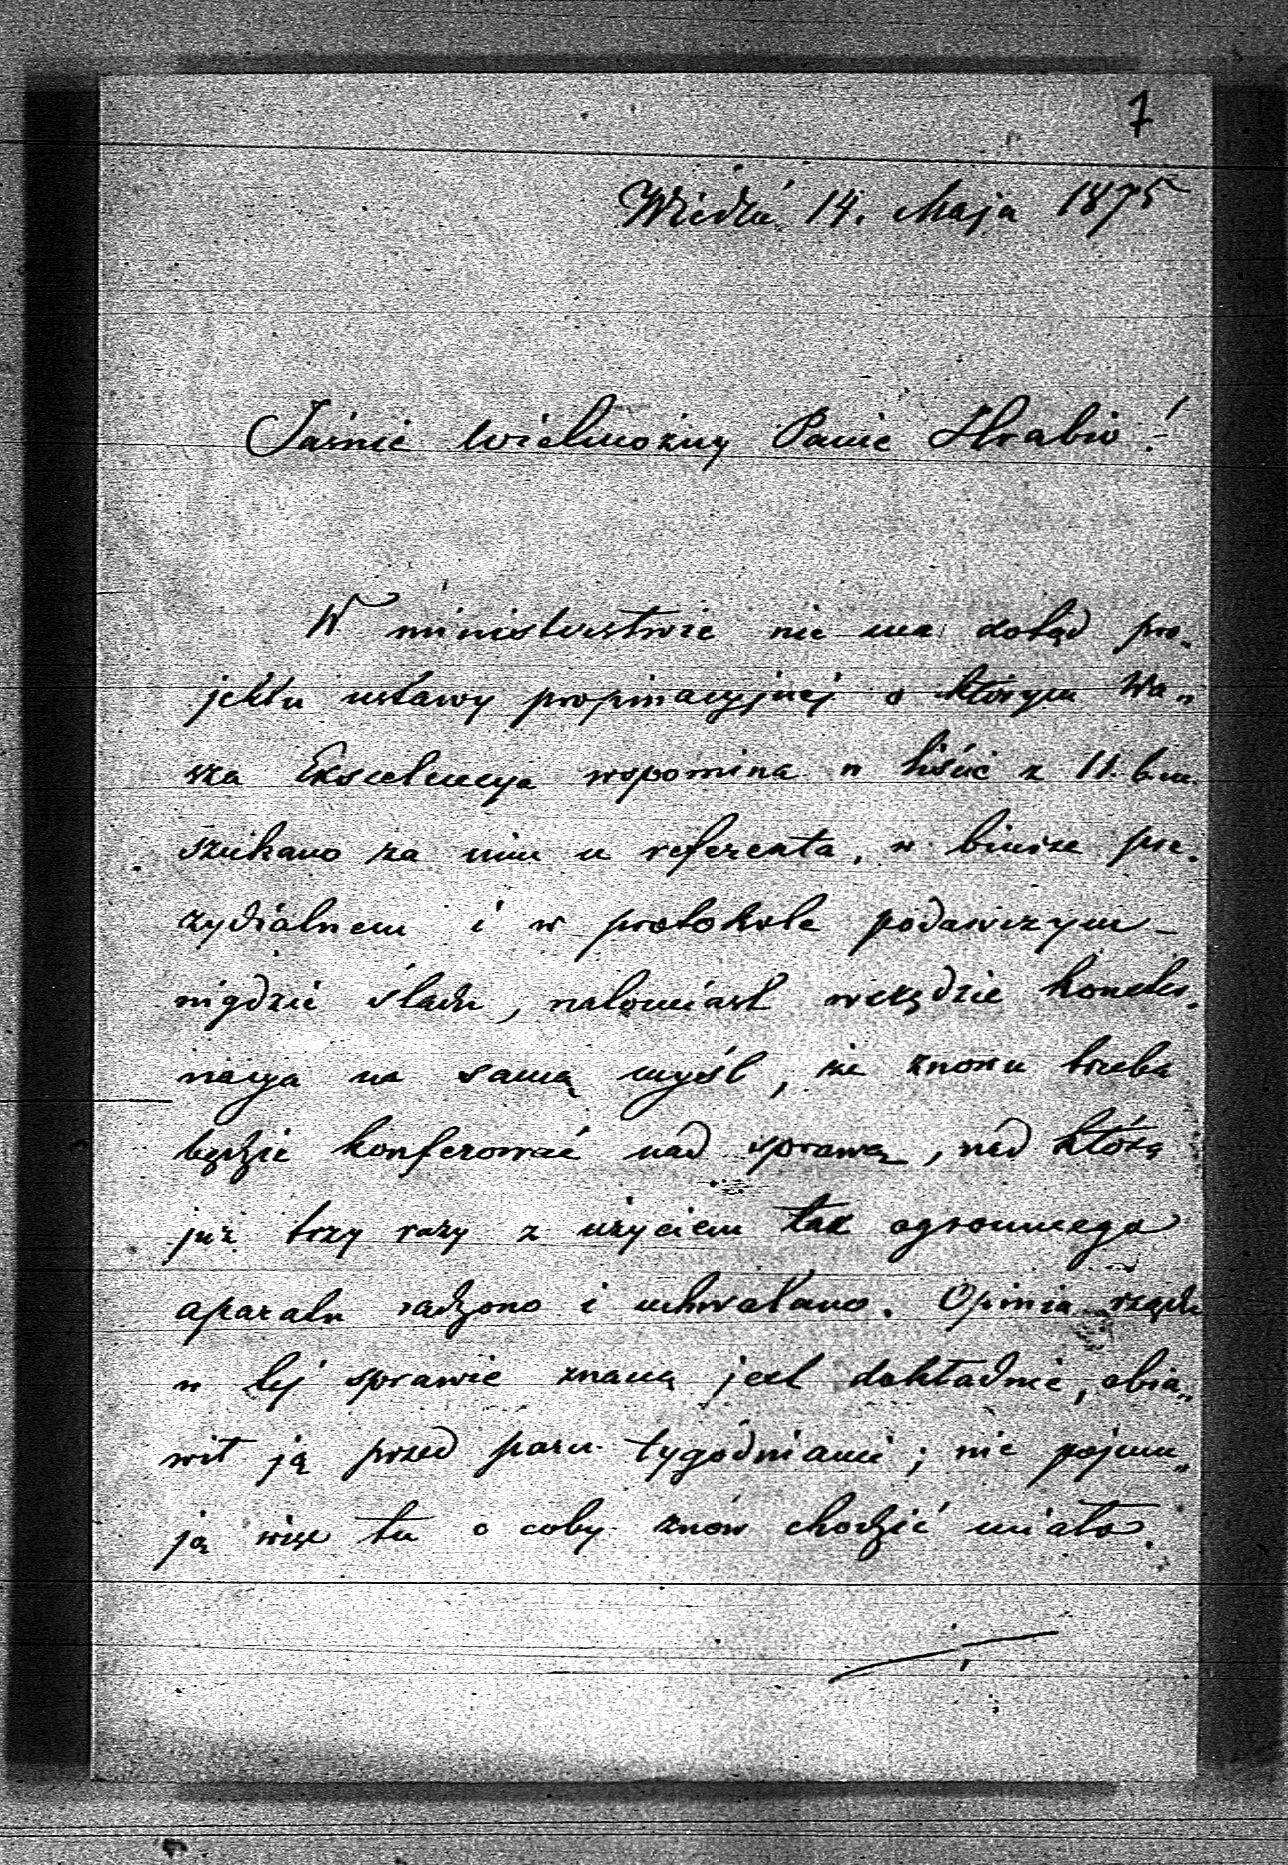 7
Wiedeń 14. Maja 1875
Jaśnie wielmożny Panie Hrabio!
W ministerstwie nie ma dotąd pro-
jektu ustawy propinacyjnej o którym Wa-
sza Ekscelencya wspomina w liście z 11. b.m.
szukano za nim u referenta, w biurze pre-
zydialnem i w protokole podawczym –
nigdzie śladu, natomiast wszędzie konster-
nacya na samą myśl, że znowu trzeba
będzie konferować nad sprawą, nad którą
już trzy razy z użyciem tak ogromnego
aparatu radzono i uchwalano. Opinia rządu
w tej sprawie znaną jest dokładnie, obja-
wił ją przed paru tygodniami; nie pojmu-
ją więc tu o coby znów chodzić miało.